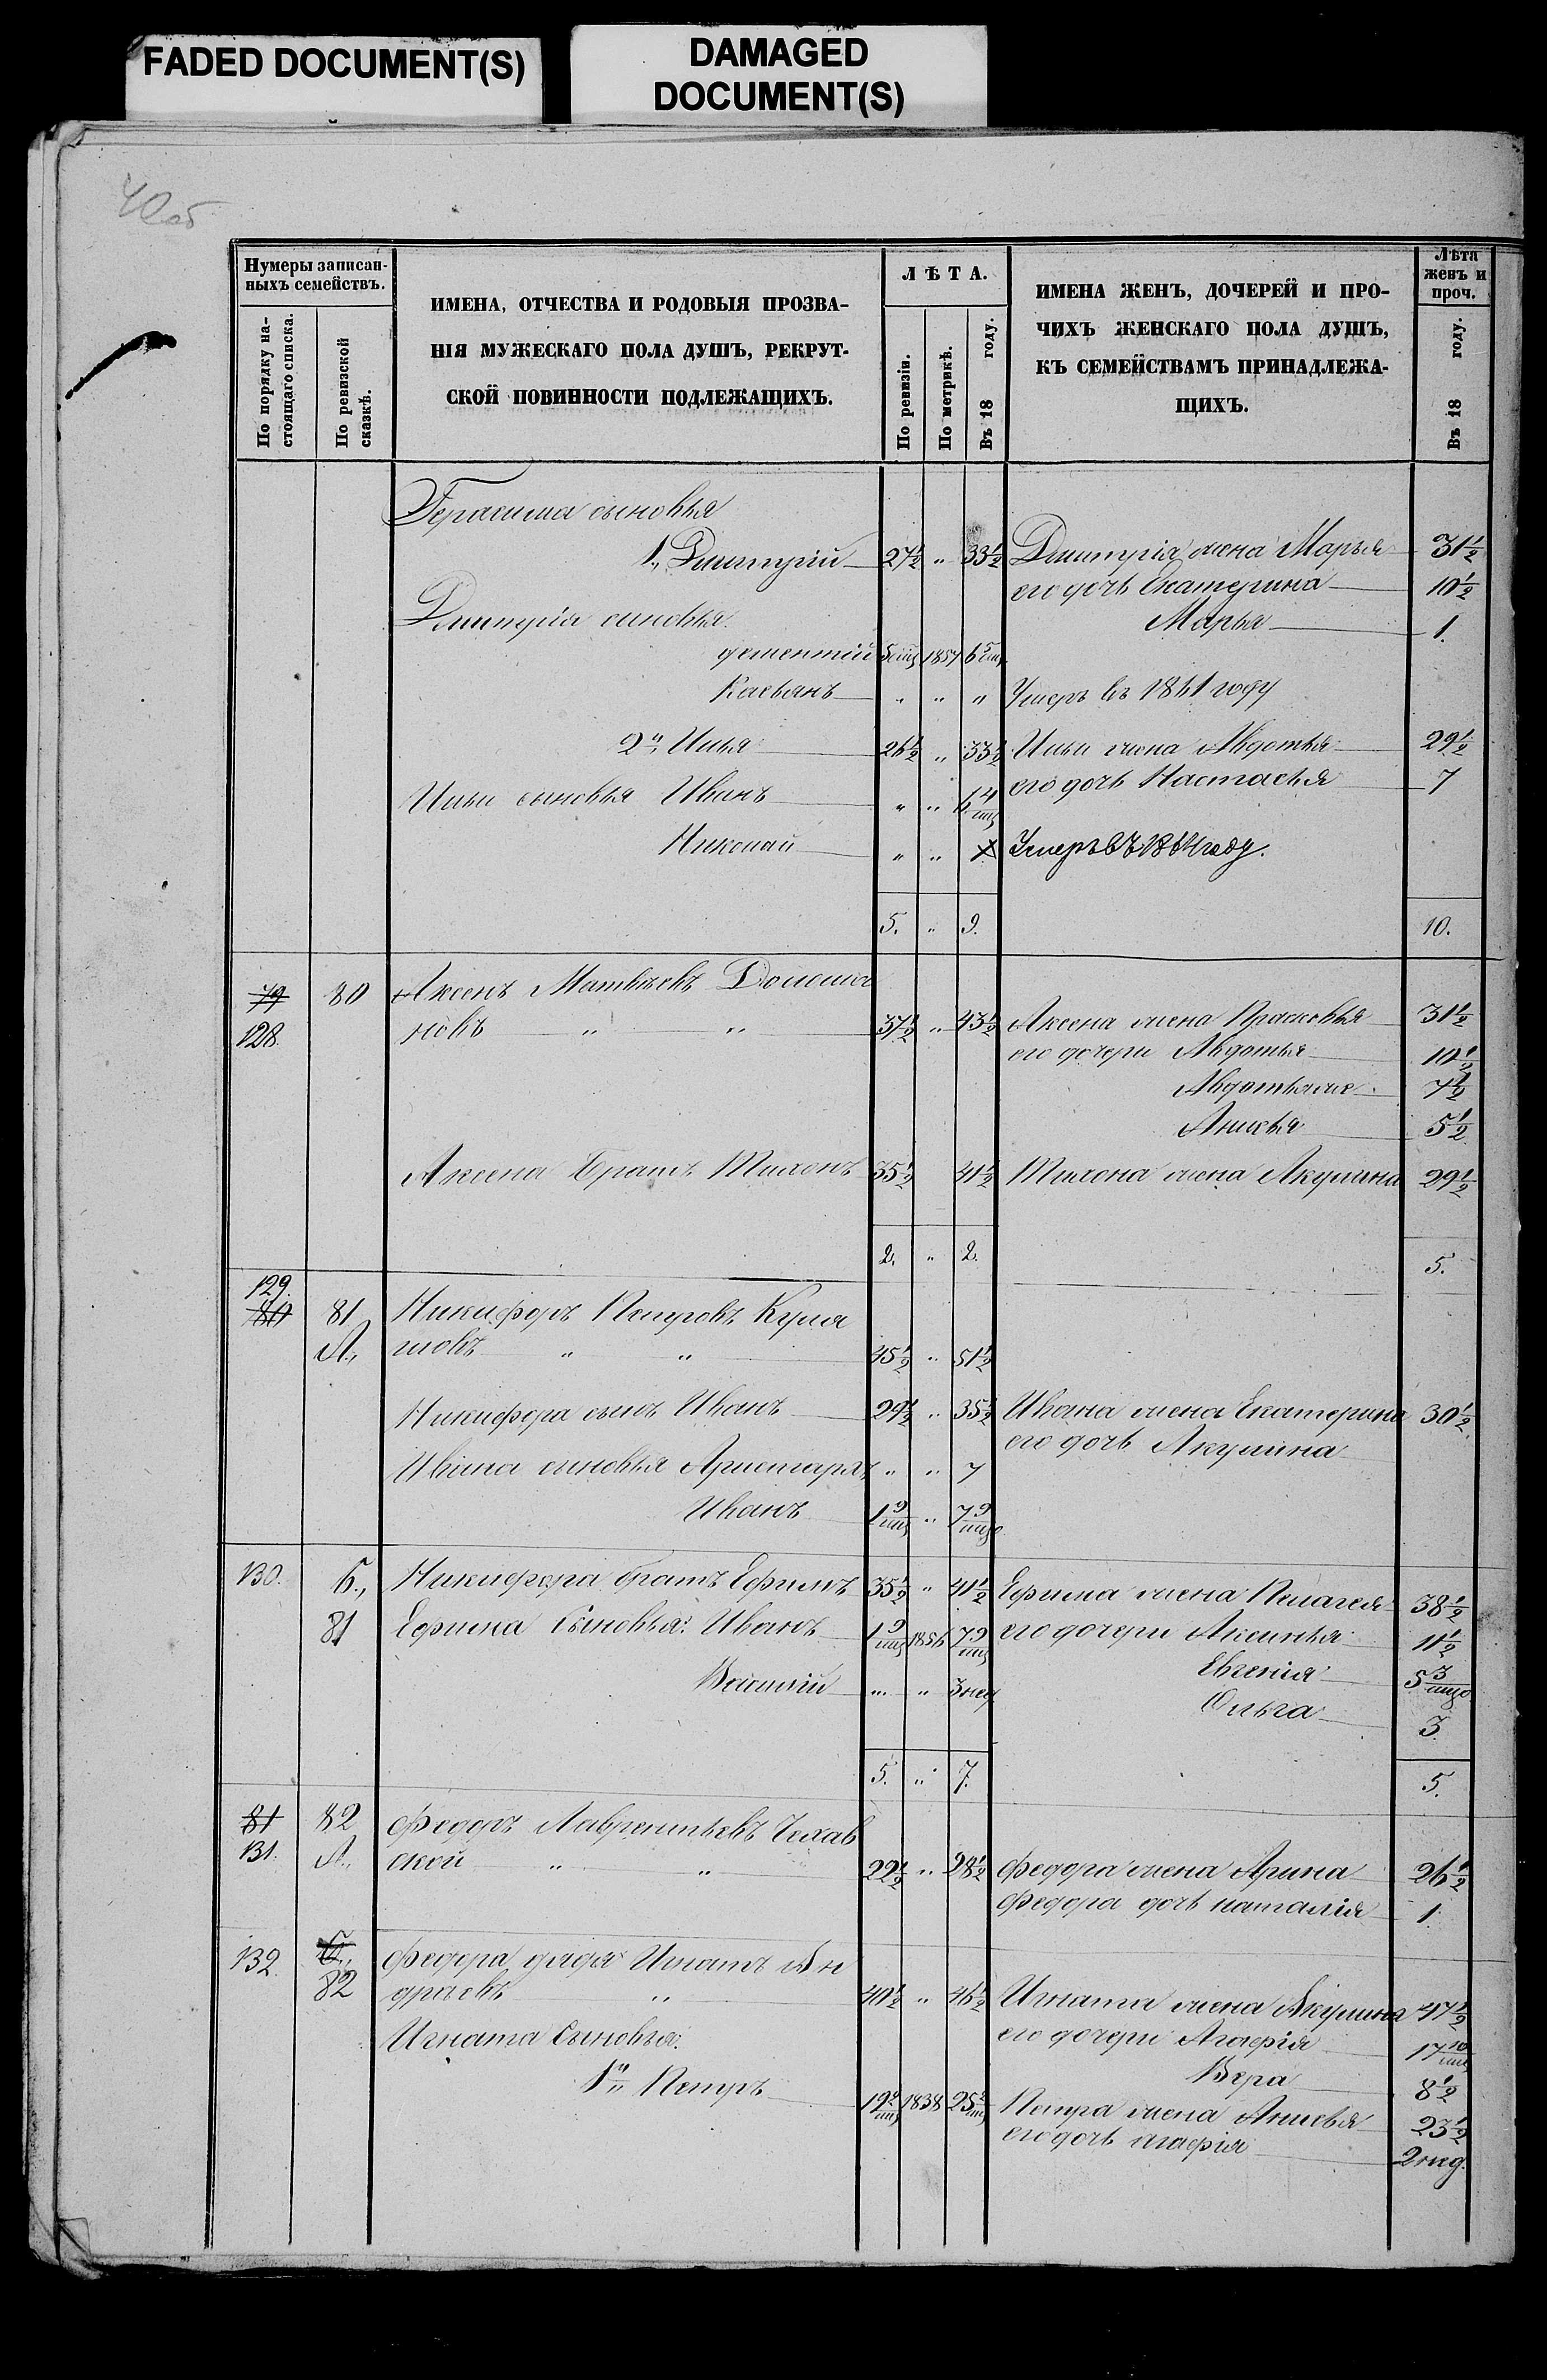 FADED DOCUMENT(S)
DAMAGED
DOCUMENT(S)
40об
Нумеры записан-
ныхъ семействъ.
По порядку на-
стоящаго списка.
По ревизской
сказкѣ.
ИМЕНА, ОТЧЕСТВА И РОДОВЫЯ ПРОЗВА-
НІЯ МУЖЕСКАГО ПОЛА ДУШЪ, РЕКРУТ-
СКОЙ ПОВИННОСТИ ПОДЛЕЖАЩИХЪ.
ЛѢТА.
По ревизіи.
По метрикѣ.
Въ 18 году.
ИМЕНА ЖЕНЪ, ДОЧЕРЕЙ И ПРО-
ЧИХЪ ЖЕНСКАГО ПОЛА ДУШЪ,
КЪ СЕМЕЙСТВАМЪ ПРИНАДЛЕЖА-
ЩИХЪ.
Лѣта
женъ и
проч.
Въ 18 году.
Герасима сыновья
1, Дмитрій 27½ " 33½ Дмитрія жена Марья 31½
его дочь Екатерина 10½
Дмитрія сыновья Марья 1.
дементій 5 мц 1857 6 5/мц
Касьянъ " " " Умеръ въ 1861 году
2й Илья 26½ " 33½ Ильи жена Авдотья 29½
его дочь Настасья 7
Ильи сыновья Иванъ " " 6 4/мц
Николай " " Умеръ въ 1864 году.
5. " 9. 10.
79 80 Аксенъ Матвѣевъ Долома
128. новъ " " 37½ " 43½ Аксена жена Прасковья 31½
его дочери Авдотья 10½
Авдотья же 7½
Анисья 5½
Аксена братъ Тихонъ 35½ 41½ Тихона жена Акулина 29½
2. " 2. 5.
129.
80 81 Никифоръ Петровъ Куля
А., шовъ " " 45½ " 51½
Никифора сынъ Иванъ 29½ " 35½ Ивана жена Екатерина 30½
его дочь Акулина
Ивана сыновья Аристархъ " " 7
Иванъ 1 9/мц " 7 9/мцо
130. Б., Никифора братъ Ефимъ 35½ " 41½ Ефима жена Пелагея 38½
81 Ефима Сыновья: Иванъ 1 9/мц 1856 7 9/мц его дочери Аксинья 11½
Евгенія 5 3/мцо
Василій " " 3 нед
Ольга 3
5. " 7. 5.
81 82 Федоръ Лаврентьевъ Чехав
131. А., ской " " 22½ " 28½ Федора жена Арина 26½
Федора дочь наталія 1
132. Б., Федора дядя Игнатъ Ан
82 дреевъ " 40½ " 46½ Игната жена Акулина 47½
его дочери Агафія 17 10/мц
Игната Сыновья:
Вера 8½
1й Петръ 19 2/мц 1838 25 2/мц Петра жена Анисья 23½
его дочь агафія 2 нед.